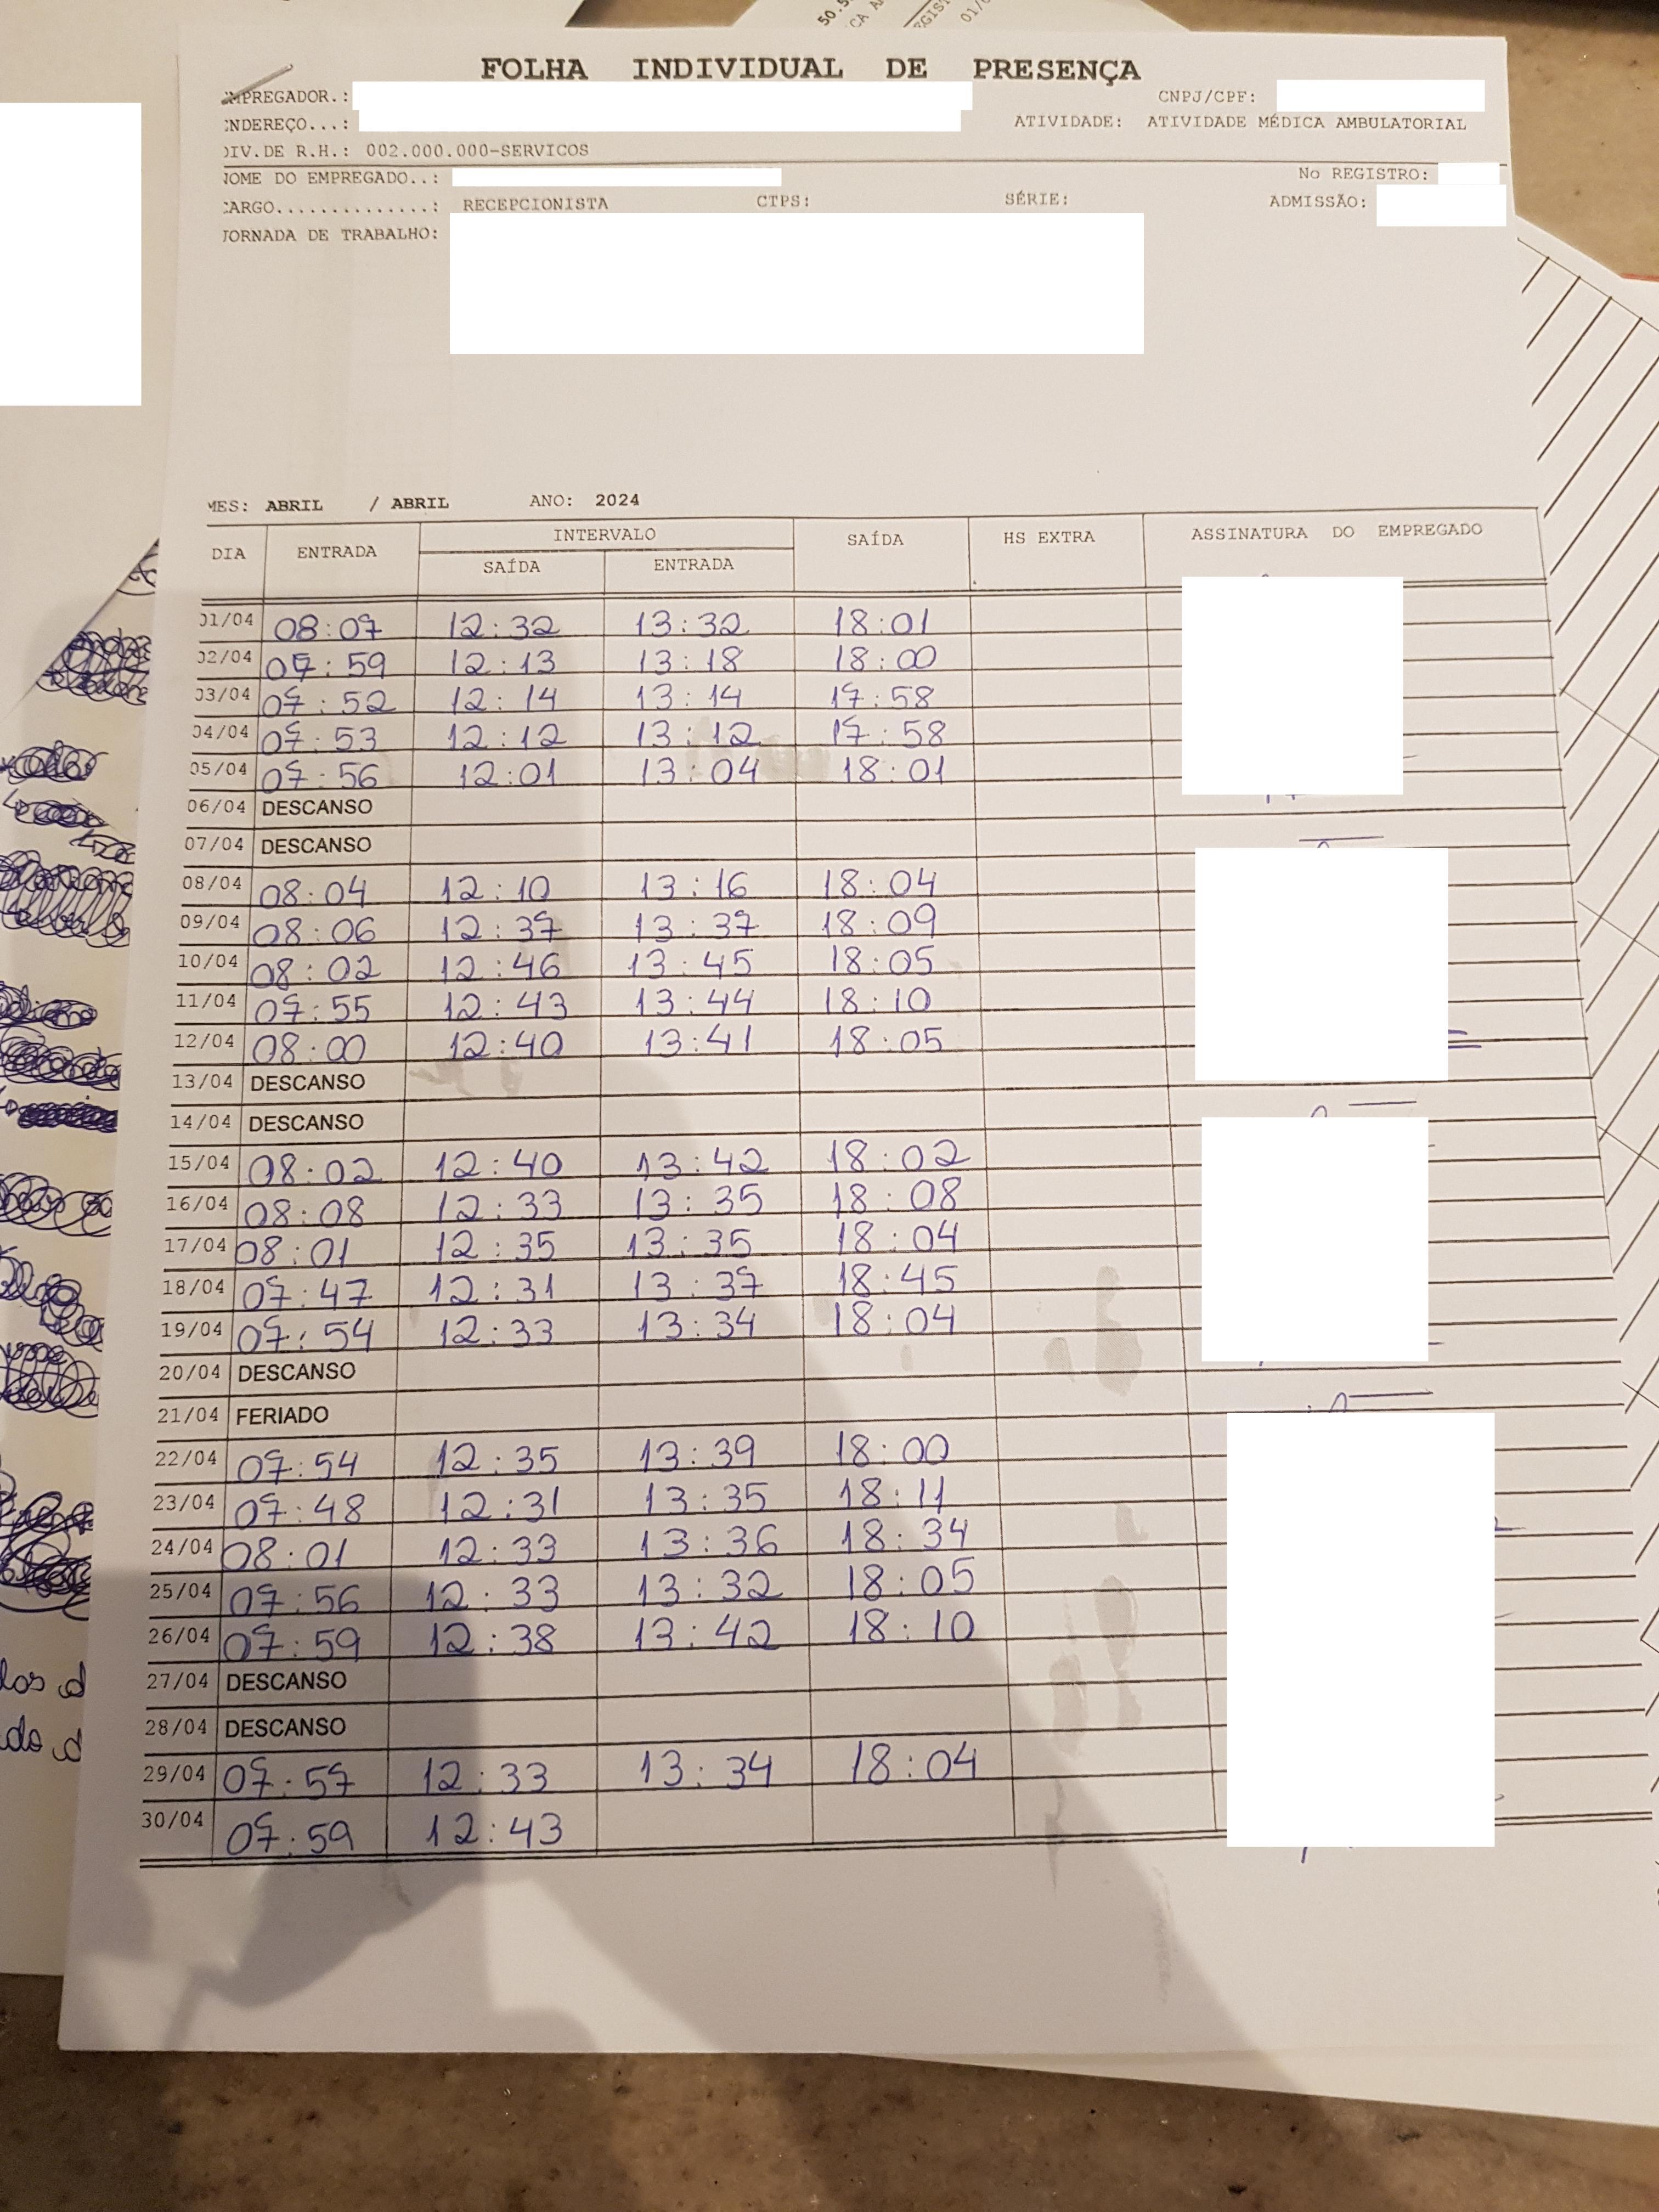 50.5
CA A
EGIST
01/0
FOLHA INDIVIDUAL DE PRESENÇA
MPREGADOR.: CNPJ/CPF:
NDEREÇO...: ATIVIDADE: ATIVIDADE MÉDICA AMBULATORIAL
DIV.DE R.H.: 002.000.000-SERVICOS
NOME DO EMPREGADO..: No REGISTRO:
CARGO..............: RECEPCIONISTA CTPS: SÉRIE: ADMISSÃO:
JORNADA DE TRABALHO:
MES: ABRIL / ABRIL ANO: 2024
DIA ENTRADA INTERVALO SAÍDA HS EXTRA ASSINATURA DO EMPREGADO
SAÍDA ENTRADA
01/04 08:07 12:32 13:32 18:01
02/04 07:59 12:13 13:18 18:00
03/04 07:52 12:14 13:14 17:58
04/04 07:53 12:12 13:12 17:58
05/04 07:56 12:01 13:04 18:01
06/04 DESCANSO
07/04 DESCANSO
08/04 08:04 12:10 13:16 18:04
09/04 08:06 12:37 13:37 18:09
10/04 08:02 12:46 13:45 18:05
11/04 07:55 12:43 13:44 18:10
12/04 08:00 12:40 13:41 18:05
13/04 DESCANSO
14/04 DESCANSO
15/04 08:02 12:40 13:42 18:02
16/04 08:08 12:33 13:35 18:08
17/04 08:01 12:35 13:35 18:04
18/04 07:47 12:31 13:37 18:45
19/04 07:54 12:33 13:34 18:04
20/04 DESCANSO
21/04 FERIADO
22/04 07:54 12:35 13:39 18:00
23/04 07:48 12:31 13:35 18:11
24/04 08:01 12:33 13:36 18:34
25/04 07:56 12:33 13:32 18:05
26/04 07:59 12:38 13:42 18:10
27/04 DESCANSO
28/04 DESCANSO
29/04 07:57 12:33 13:34 18:04
30/04 07:59 12:43